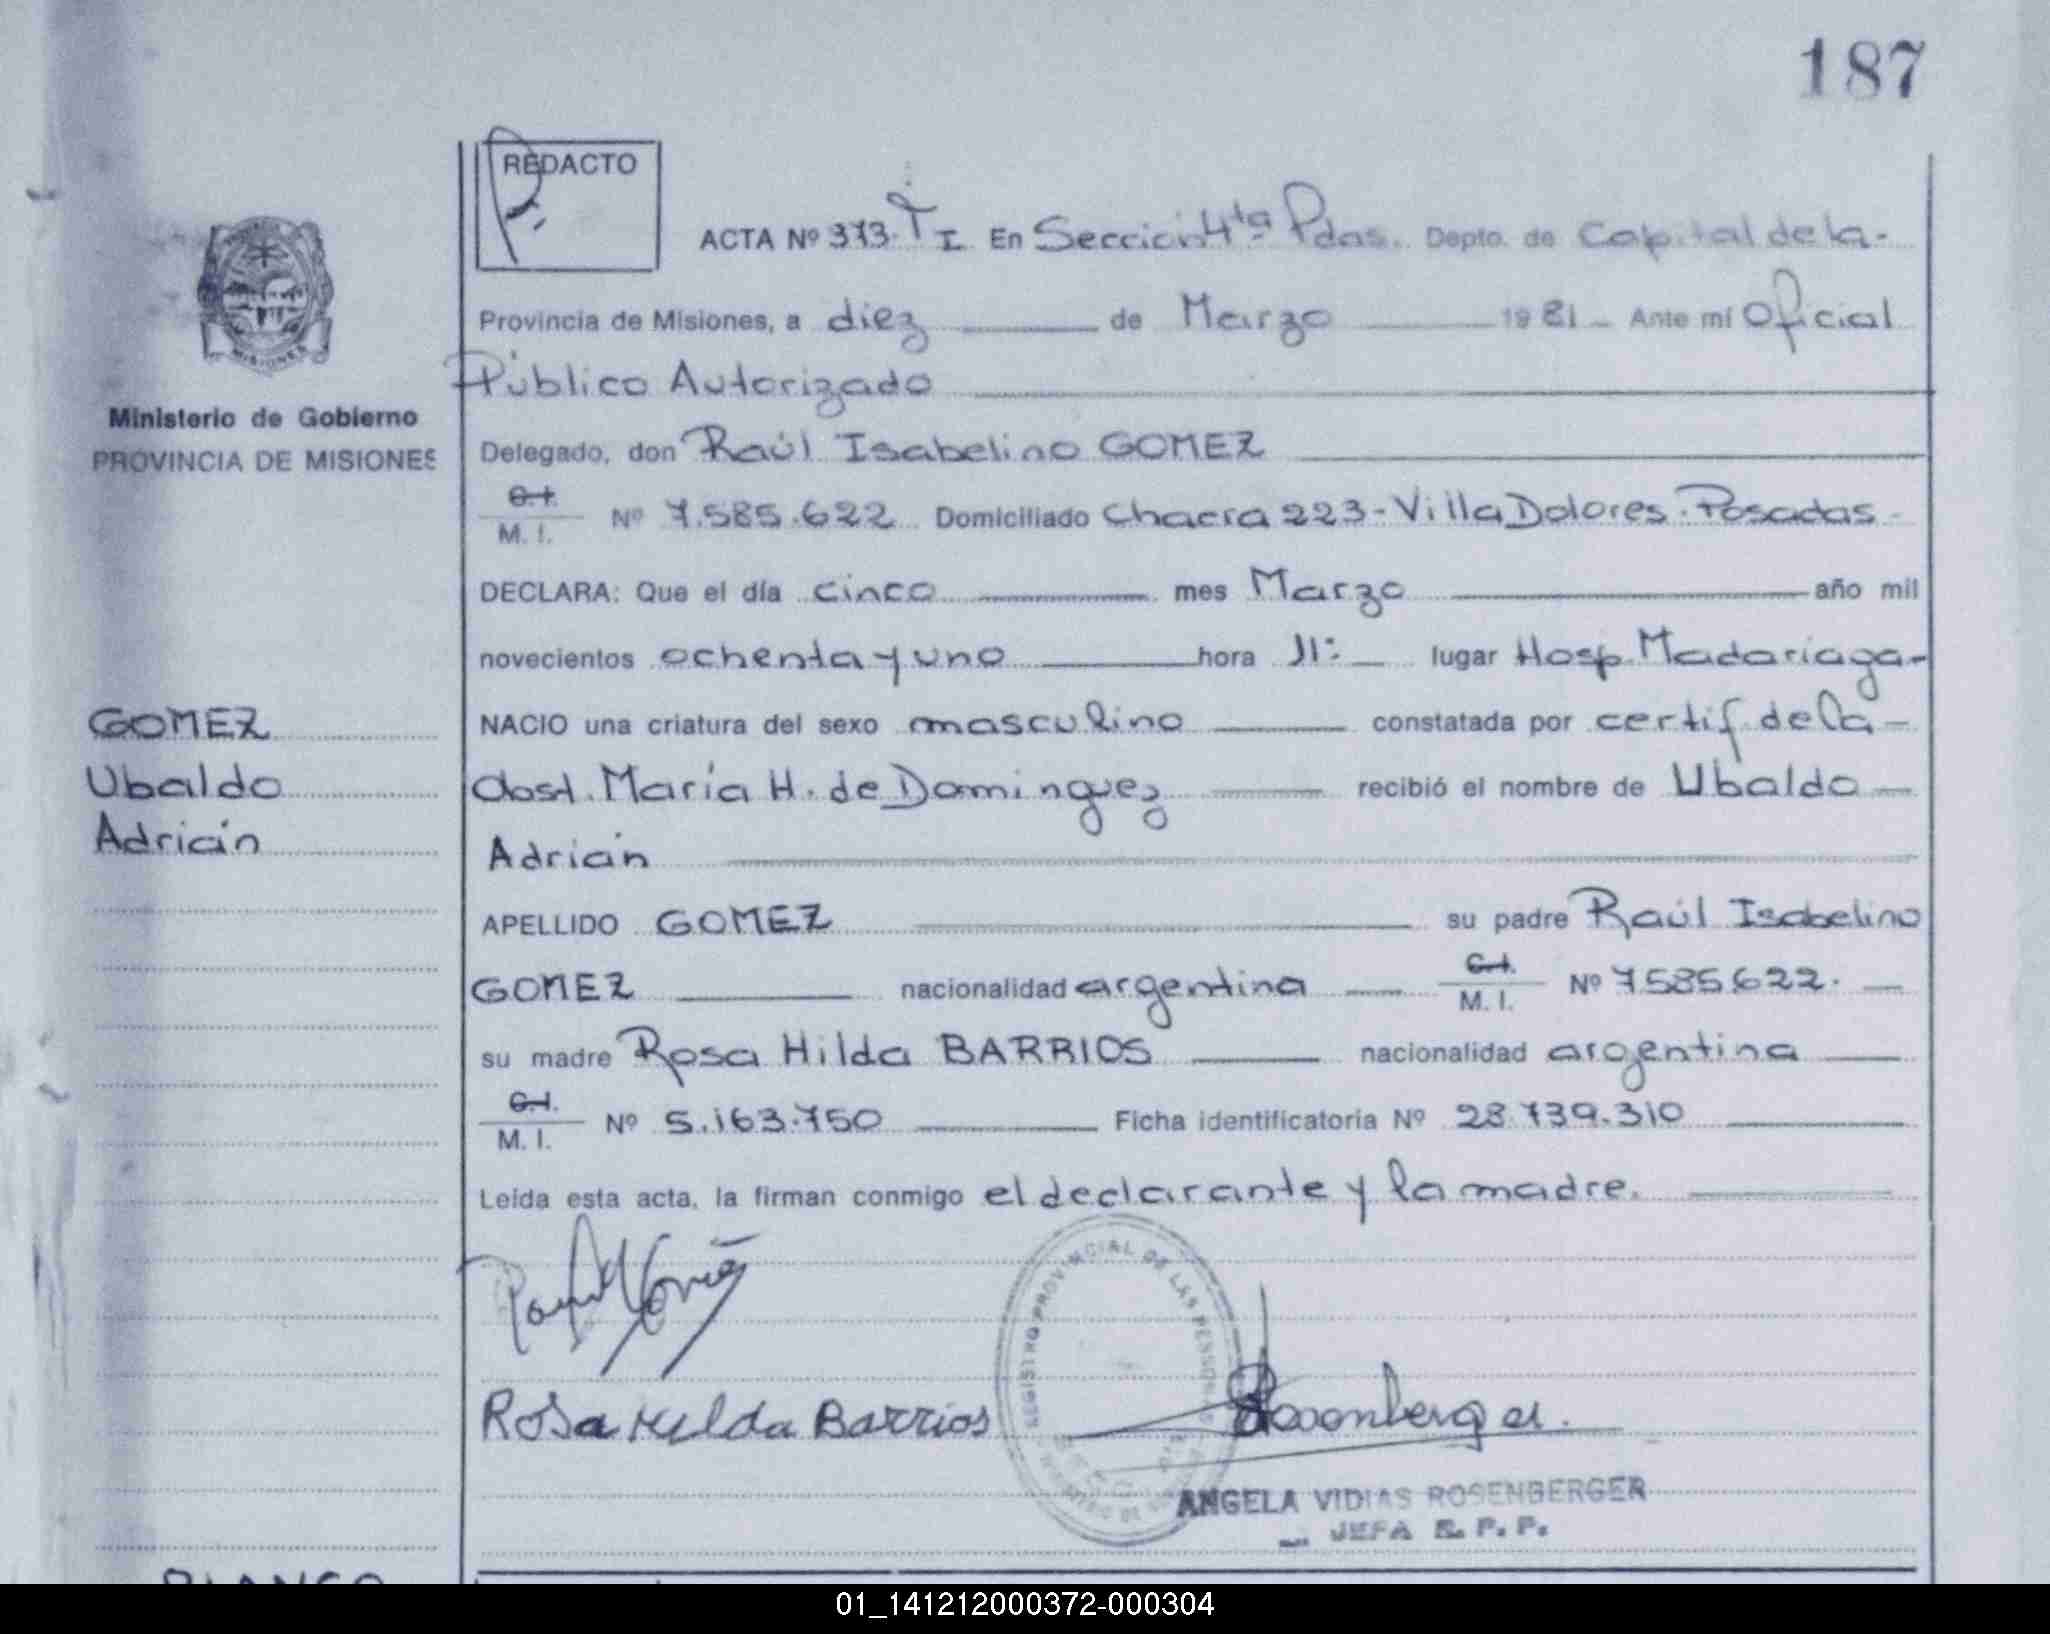 187
REDACTO
ACTA Nº 373. T I En Sección 4ta Pdas. Depto. de Capital de la-
Provincia de Misiones, a diez de Marzo 1981 Ante mí Oficial
Público Autorizado
Ministerio de Gobierno
PROVINCIA DE MISIONES
Delegado, don Raúl Isabelino GOMEZ
C.I.
M. I. Nº 7.585.622 Domiciliado Chacra 223-Villa Dolores-Posadas-
DECLARA: Que el día cinco mes Marzo año mil
novecientos ochenta y uno hora 11: lugar Hosp. Madariaga-
GOMEZ
Ubaldo
Adrián
NACIO una criatura del sexo masculino constatada por certif. de la-
Obst. María H. de Dominguez recibió el nombre de Ubaldo
Adrián
APELLIDO GOMEZ su padre Raúl Isabelino
GOMEZ nacionalidad argentina C.I. M. I. Nº 7585.622.
su madre Rosa Hilda BARRIOS nacionalidad argentina
C.I.
M. I. Nº 5.163.750 Ficha identificatoria Nº 28.739.310
Leída esta acta, la firman conmigo el declarante y la madre.
REGISTRO PROVINCIAL DE LAS PERSONAS
Rosa Hilda Barrios
Rosenberger.
ANGELA VIDIAS ROSENBERGER
JEFA S. P. P.
BLANCO
01_141212000372-000304